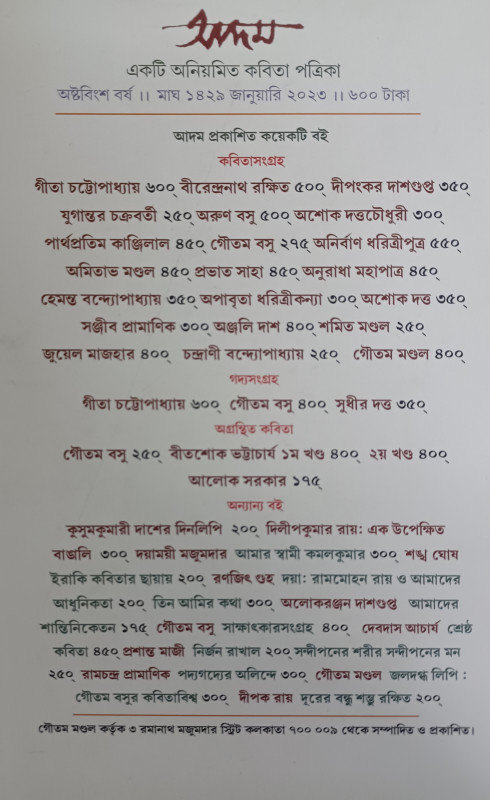 আদম
একটি অনিয়মিত কবিতা পত্রিকা
অষ্টবিংশ বর্ষ ।। মাঘ ১৪২৯ জানুয়ারি ২০২৩ ।। ৬০০ টাকা
আদম প্রকাশিত কয়েকটি বই
কবিতাসংগ্রহ
গীতা চট্টোপাধ্যায় ৬০০্ বীরেন্দ্রনাথ রক্ষিত ৫০০্ দীপংকর দাশগুপ্ত ৩৫০্
যুগান্তর চক্রবর্তী ২৫০্ অরুণ বসু ৫০০্ অশোক দত্তচৌধুরী ৩০০্
পার্থপ্রতিম কাঞ্জিলাল ৪৫০্ গৌতম বসু ২৭৫্ অনির্বাণ ধরিত্রীপুত্র ৫৫০্
অমিতাভ মণ্ডল ৪৫০্ প্রভাত সাহা ৪৫০্ অনুরাধা মহাপাত্র ৪৫০্
হেমন্ত বন্দ্যোপাধ্যায় ৩৫০্ অপাবৃতা ধরিত্রীকন্যা ৩০০্ অশোক দত্ত ৩৫০্
সঞ্জীব প্রামাণিক ৩০০্ অঞ্জলি দাশ ৪০০্ শমিত মণ্ডল ২৫০্
জুয়েল মাজহার ৪০০্ চন্দ্রাণী বন্দ্যোপাধ্যায় ২৫০্ গৌতম মণ্ডল ৪০০্
গদ্যসংগ্রহ
গীতা চট্টোপাধ্যায় ৬০০্ গৌতম বসু ৪০০্ সুধীর দত্ত ৩৫০্
অগ্রন্থিত কবিতা
গৌতম বসু ২৫০্ বীতশোক ভট্টাচার্য ১ম খণ্ড ৪০০্ ২য় খণ্ড ৪০০্
আলোক সরকার ১৭৫্
অন্যান্য বই
কুসুমকুমারী দাশের দিনলিপি ২০০্ দিলীপকুমার রায়: এক উপেক্ষিত
বাঙালি ৩০০্ দয়াময়ী মজুমদার আমার স্বামী কমলকুমার ৩০০্ শঙ্খ ঘোষ
ইরাকি কবিতার ছায়ায় ২০০্ রণজিৎ গুহ দয়া: রামমোহন রায় ও আমাদের
আধুনিকতা ২০০্ তিন আমির কথা ৩০০্ অলোকরঞ্জন দাশগুপ্ত আমাদের
শান্তিনিকেতন ১৭৫্ গৌতম বসু সাক্ষাৎকারসংগ্রহ ৪০০্ দেবদাস আচার্য শ্রেষ্ঠ
কবিতা ৪৫০্ প্রশান্ত মাজী নির্জন রাখাল ২০০্ সন্দীপনের শরীর সন্দীপনের মন
২৫০্ রামচন্দ্র প্রামাণিক পদ্যগদ্যের অলিন্দে ৩০০্ গৌতম মণ্ডল জলদগ্ধ লিপি :
গৌতম বসুর কবিতাবিশ্ব ৩০০্ দীপক রায় দূরের বন্ধু শম্ভু রক্ষিত ২০০্
গৌতম মণ্ডল কর্তৃক ৩ রমানাথ মজুমদার স্ট্রিট কলকাতা ৭০০ ০০৯ থেকে সম্পাদিত ও প্রকাশিত।